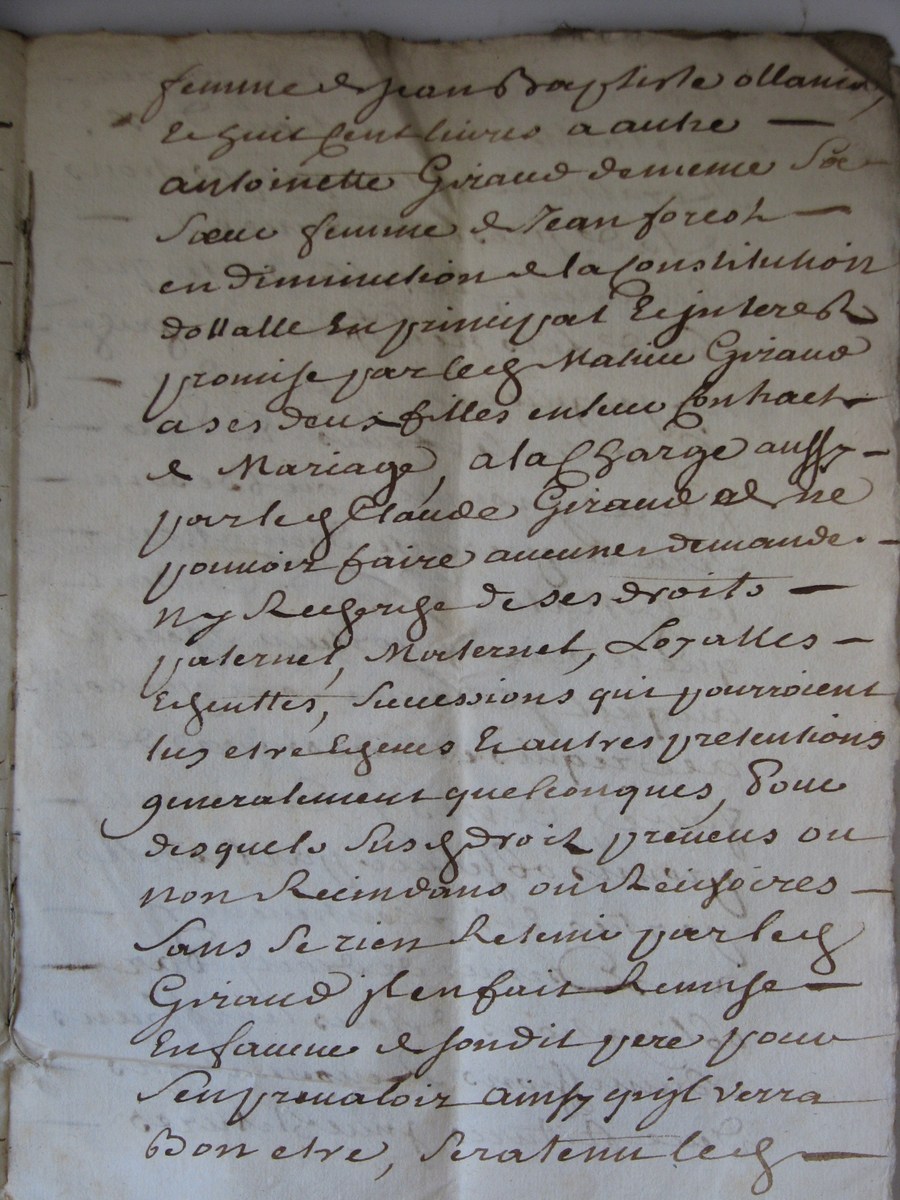 femme de Jean Baptiste ollanier,
Et huit Cent livres a autre —
antoinette Giraud de meme Sa —
Sœur femme de Jean foreot —
en diminution de la Constitution
dottalle En principal Et jnterest
promise par led Mathieu Giraud
a ses deux filles en leur Contract —
de Mariage, a la Charge aussy —
par led Claude Giraud de ne
pouvoir faire aucune demande —
ny Recherche de ses droits —
paternel, Maternel, Loyalles —
Echeuttes, Successions qui pourroient
luy etre Echeues Et autres pretentions
generalement quelconques, Pour
desquels Susd droit preveus ou
non Recindans ou Recisoires —
Sans Se rien Retenir par led
Giraud jl en fait Remise —
En faveur de sondit pere pour
S'en prevaloir ainsy qu'jl verra
Bon etre, Sera tenu led —